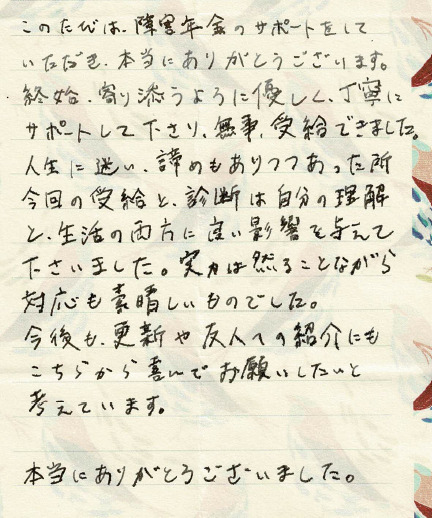 このたびは、障害年金のサポートをして
いただき、本当にありがとうございます。
終始、寄り添うように優しく、丁寧に
サポートして下さり、無事、受給できました。
人生に迷い、諦めもありつつあった所
今回の受給と、診断は自分の理解
と、生活の両方に良い影響を与えて
下さいました。実力は然ることながら
対応も素晴しいものでした。
今後も、更新や友人への紹介にも
こちらから喜んでお願いしたいと
考えています。
本当にありがとうございました。